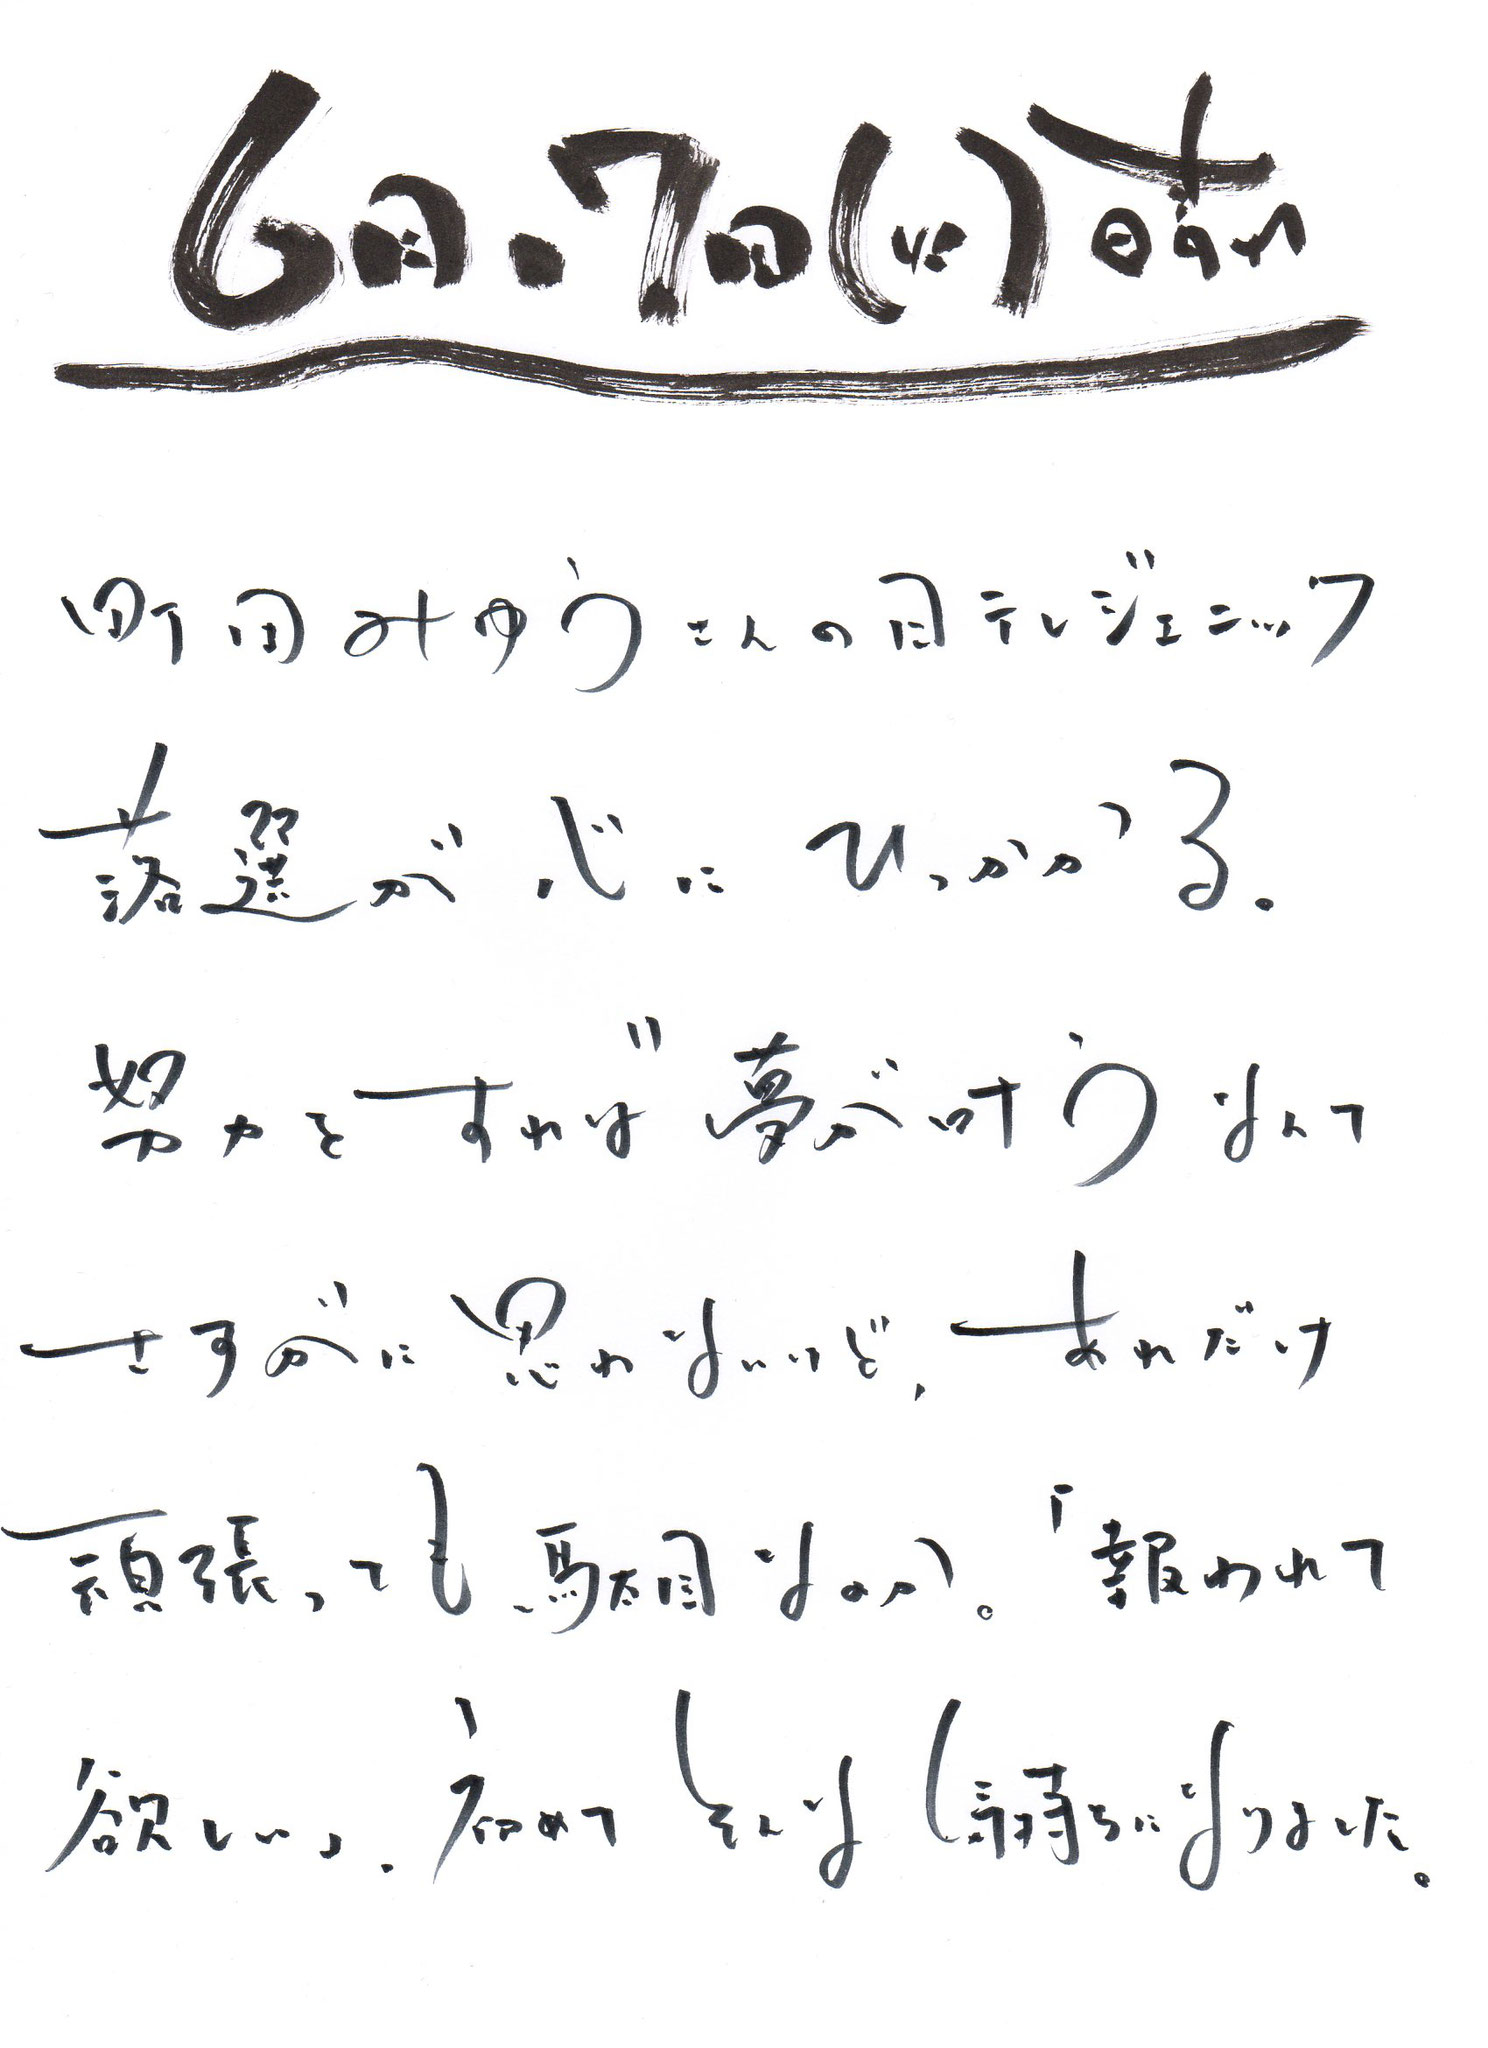 6月.7日(火)晴れ
町田みゆうさんの日テレジェニック
落選が心にひっかかる。
努力をすれば夢が叶うなんて
さすがに思わないけど、あれだけ
頑張っても駄目なのか。「報われて
欲しい」、初めてそんな気持ちになりました。